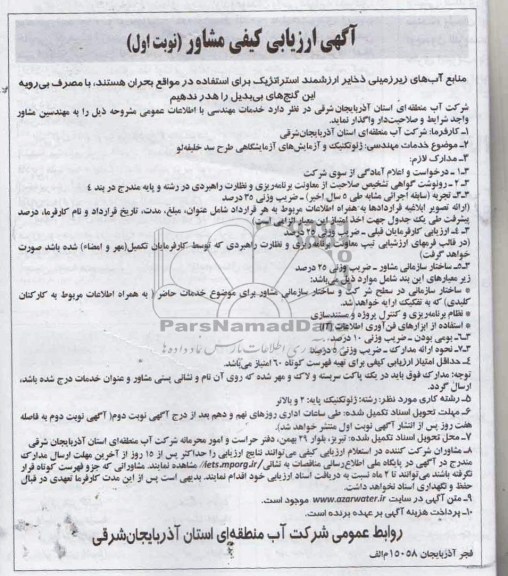 آگهی ارزیابی کیفی مشاور (نوبت اول)
منابع آب‌های زیرزمینی ذخایر ارزشمند استراتژیک برای استفاده در مواقع بحران هستند، با مصرف بی‌رویه
این گنج‌های بی‌بدیل را هدر ندهیم
شرکت آب منطقه‌ای استان آذربایجان شرقی در نظر دارد خدمات مهندسی با اطلاعات عمومی مشروحه ذیل را به مهندسین مشاور
واجد شرایط و صلاحیت‌دار واگذار نماید.
۱ـ کارفرما: شرکت آب منطقه‌ای استان آذربایجان‌شرقی
۲ـ موضوع خدمات مهندسی: ژئوتکنیک و آزمایش‌های آزمایشگاهی طرح سد خلیفه‌لو
۳ـ مدارک لازم:
۳ـ۱ ـ درخواست و اعلام آمادگی از سوی شرکت
۳ـ۲ ـ رونوشت گواهی تشخیص صلاحیت از معاونت برنامه‌ریزی و نظارت راهبردی در رشته و پایه مندرج در بند ۴
۳ـ۳ـ تجربه (سابقه اجرائی مشابه طی ۵ سال اخیر) ـ ضریب وزنی ۳۵ درصد
(ارائه تصویر ابلاغیه قراردادها به همراه اطلاعات مربوط به هر قرارداد شامل عنوان، مبلغ، مدت، تاریخ قرارداد و نام کارفرما، درصد
پیشرفت طی یک جدول جهت اخذ امتیاز این معیار الزامی است)
۳ـ۴ـ ارزیابی کارفرمایان قبلی ـ ضریب وزنی ۲۵ درصد
(در قالب فرمهای ارزشیابی تیپ معاونت برنامه‌ریزی و نظارت راهبردی که توسط کارفرمایان تکمیل(مهر و امضاء) شده باشد صورت
خواهد گرفت)
۳ـ۵ـ ساختار سازمانی مشاور ـ ضریب وزنی ۲۵ درصد
زیر معیارهای این بند شامل موارد ذیل می‌باشد:
* ساختار سازمانی در سطح شرکت و ساختار سازمانی مشاور برای موضوع خدمات حاضر (به همراه اطلاعات مربوط به کارکنان
کلیدی) که به تفکیک ارایه خواهد شد.
* نظام برنامه‌ریزی و کنترل پروژه و مستندسازی
* استفاده از ابزارهای فن‌آوری اطلاعات (IT)
۳ـ۶ـ بومی بودن ـ ضریب وزنی ۱۰ درصد
۳ـ۷ـ نحوه ارائه مدارک ـ ضریب وزنی ۵ درصد
۴ـ حداقل امتیاز ارزیابی کیفی برای تهیه فهرست کوتاه ۶۰ امتیاز می‌باشد.
توجه: مدارک فوق باید در یک پاکت سربسته و لاک و مهر شده که روی آن نام و نشانی پستی مشاور و عنوان خدمات درج شده باشد،
ارسال گردد.
۵ـ رشته کاری مورد نظر: رشته: ژئوتکنیک پایه: ۲ و بالاتر
۶ـ مهلت تحویل اسناد تکمیل شده: طی ساعات اداری روزهای نهم و دهم بعد از درج آگهی نوبت دوم( آگهی نوبت دوم به فاصله
هفت روز پس از انتشار آگهی نوبت اول منتشر خواهد شد).
۷ـ محل تحویل اسناد تکمیل شده: تبریز، بلوار ۲۹ بهمن، دفتر حراست و امور محرمانه شرکت آب منطقه‌ای استان آذربایجان شرقی
۸ـ مشاوران شرکت کننده در استعلام ارزیابی کیفی می‌توانند نتایج ارزیابی را حداکثر پس از ۱۵ روز از آخرین مهلت ارسال مدارک
مندرج در آگهی در پایگاه ملی اطلاع‌رسانی مناقصات به نشانی iets.mporg.ir// مشاهده نمایند. مشاورانی که جزو فهرست کوتاه قرار
نگرفته باشند می‌توانند تا ۲ ماه نسبت به دریافت اسناد ارزیابی خود اقدام نمایند. بدیهی است پس از این مدت کارفرما تعهدی در قبال
حفظ و نگهداری اسناد نخواهد داشت.
۹ـ متن آگهی در سایت www.azarwater.ir موجود است.
۱۰ـ پرداخت هزینه آگهی بر عهده برنده است.
روابط عمومی شرکت آب منطقه‌ای استان آذربایجان‌شرقی
فجر آذربایجان ۱۵۰۵۸ م الف
ParsNamadData